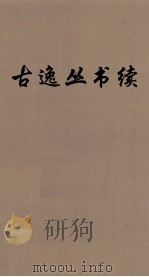 古逸丛书续
mtoou.info